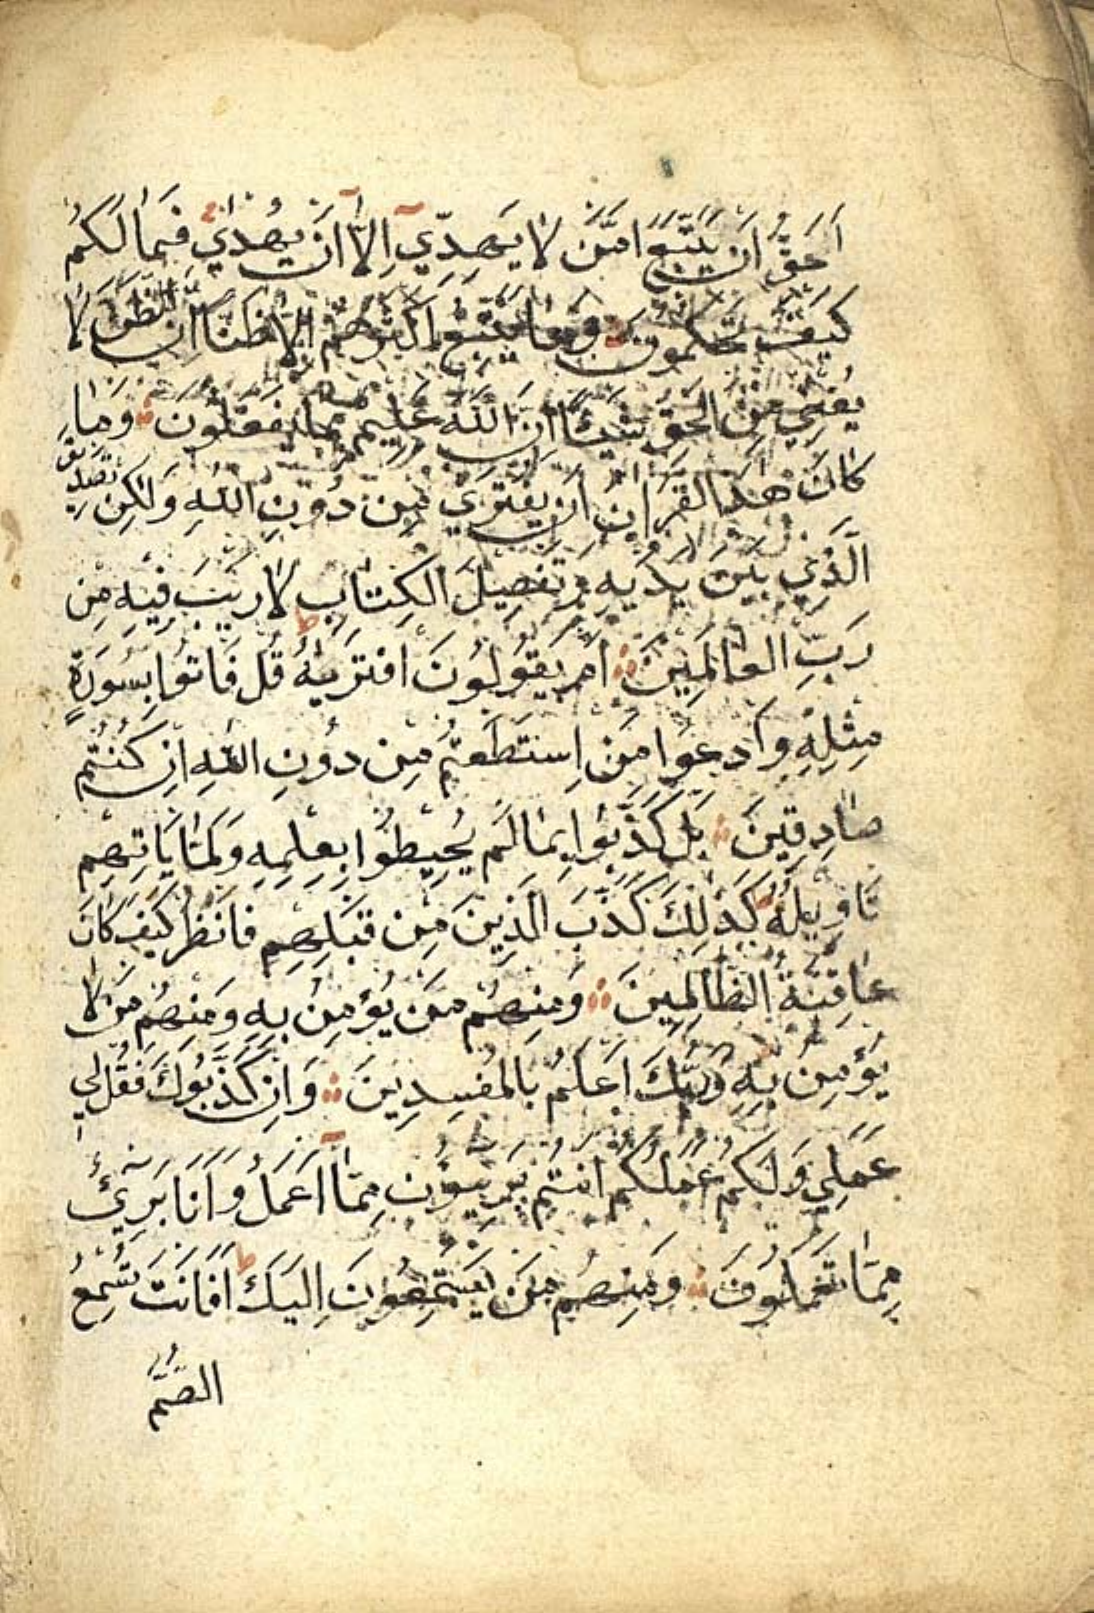 اَحَقُّ اَنْ يُتَّبَعَ اَمَّنْ لَا يَهِدِّي اِلَّا اَنْ يُهْدٰي فَمَا لَكُمْ
كَيْفَ تَحْكُمُونَ وَمَا يَتَّبِعُ اَكْثَرُهُمْ اِلَّا ظَنًّا اِنَّ الظَّنَّ لَا
يُغْنِي مِنَ الْحَقِّ شَيْئًا اِنَّ اللّٰهَ عَلِيمٌ بِمَا يَفْعَلُونَ وَمَا
كَانَ هٰذَا الْقُرْاٰنُ اَنْ يُفْتَرٰي مِنْ دُونِ اللّٰهِ وَلٰكِنْ تَصْدِيقَ
الَّذِي بَيْنَ يَدَيْهِ وَتَفْصِيلَ الْكِتَابِ لَا رَيْبَ فِيهِ مِنْ
رَبِّ الْعَالَمِينَ اَمْ يَقُولُونَ افْتَرٰيهُ قُلْ فَاْتُوا بِسُورَةٍ
مِثْلِهِ وَادْعُوا مَنِ اسْتَطَعْتُمْ مِنْ دُونِ اللّٰهِ اِنْ كُنْتُمْ
صَادِقِينَ بَلْ كَذَّبُوا بِمَا لَمْ يُحِيطُوا بِعِلْمِهِ وَلَمَّا يَاْتِهِمْ
تَاْوِيلُهُ كَذٰلِكَ كَذَّبَ الَّذِينَ مِنْ قَبْلِهِمْ فَانْظُرْ كَيْفَ كَانَ
عَاقِبَةُ الظَّالِمِينَ وَمِنْهُمْ مَنْ يُؤْمِنُ بِهِ وَمِنْهُمْ مَنْ لَا
يُؤْمِنُ بِهِ وَرَبُّكَ اَعْلَمُ بِالْمُفْسِدِينَ وَاِنْ كَذَّبُوكَ فَقُلْ لِي
عَمَلِي وَلَكُمْ عَمَلُكُمْ اَنْتُمْ بَرِيئُونَ مِمَّا اَعْمَلُ وَاَنَا بَرِيئٌ
مِمَّا تَعْمَلُونَ وَمِنْهُمْ مَنْ يَسْتَمِعُونَ اِلَيْكَ اَفَاَنْتَ تُسْمِعُ
الصُّمَّ